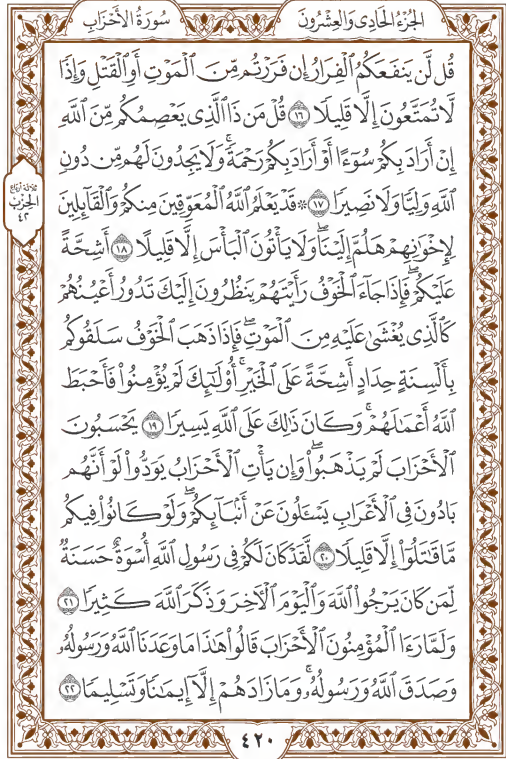 الجُزْءُ الحَادِي وَالعِشْرُونَ
سُورَةُ الأَحْزَابِ
قُل لَّن يَنفَعَكُمُ ٱلْفِرَارُ إِن فَرَرْتُم مِّنَ ٱلْمَوْتِ أَوِ ٱلْقَتْلِ وَإِذًا
لَّا تُمَتَّعُونَ إِلَّا قَلِيلًا ١٦ قُلْ مَن ذَا ٱلَّذِى يَعْصِمُكُم مِّنَ ٱللَّهِ
إِنْ أَرَادَ بِكُمْ سُوٓءًا أَوْ أَرَادَ بِكُمْ رَحْمَةً ۚ وَلَا يَجِدُونَ لَهُم مِّن دُونِ
ٱللَّهِ وَلِيًّا وَلَا نَصِيرًا ١٧ ۞ قَدْ يَعْلَمُ ٱللَّهُ ٱلْمُعَوِّقِينَ مِنكُمْ وَٱلْقَآئِلِينَ
لِإِخْوَٰنِهِمْ هَلُمَّ إِلَيْنَا ۖ وَلَا يَأْتُونَ ٱلْبَأْسَ إِلَّا قَلِيلًا ١٨ أَشِحَّةً
عَلَيْكُمْ ۖ فَإِذَا جَآءَ ٱلْخَوْفُ رَأَيْتَهُمْ يَنظُرُونَ إِلَيْكَ تَدُورُ أَعْيُنُهُمْ
كَٱلَّذِى يُغْشَىٰ عَلَيْهِ مِنَ ٱلْمَوْتِ ۖ فَإِذَا ذَهَبَ ٱلْخَوْفُ سَلَقُوكُم
بِأَلْسِنَةٍ حِدَادٍ أَشِحَّةً عَلَى ٱلْخَيْرِ ۚ أُو۟لَٰٓئِكَ لَمْ يُؤْمِنُوا۟ فَأَحْبَطَ
ٱللَّهُ أَعْمَٰلَهُمْ ۚ وَكَانَ ذَٰلِكَ عَلَى ٱللَّهِ يَسِيرًا ١٩ يَحْسَبُونَ
ٱلْأَحْزَابَ لَمْ يَذْهَبُوا۟ ۖ وَإِن يَأْتِ ٱلْأَحْزَابُ يَوَدُّوا۟ لَوْ أَنَّهُم
بَادُونَ فِى ٱلْأَعْرَابِ يَسْـَٔلُونَ عَنْ أَنۢبَآئِكُمْ ۖ وَلَوْ كَانُوا۟ فِيكُم
مَّا قَٰتَلُوٓا۟ إِلَّا قَلِيلًا ٢٠ لَّقَدْ كَانَ لَكُمْ فِى رَسُولِ ٱللَّهِ أُسْوَةٌ حَسَنَةٌ
لِّمَن كَانَ يَرْجُوا۟ ٱللَّهَ وَٱلْيَوْمَ ٱلْأَخِرَ وَذَكَرَ ٱللَّهَ كَثِيرًا ٢١
وَلَمَّا رَءَا ٱلْمُؤْمِنُونَ ٱلْأَحْزَابَ قَالُوا۟ هَٰذَا مَا وَعَدَنَا ٱللَّهُ وَرَسُولُهُۥ
وَصَدَقَ ٱللَّهُ وَرَسُولُهُۥ ۚ وَمَا زَادَهُمْ إِلَّآ إِيمَٰنًا وَتَسْلِيمًا ٢٢
ثلاثة أرباع
الحزب
٤٢
٤٢٠